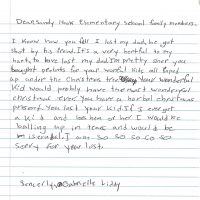 Dear, Sandy Hook Elementary school family members.
I know how you fell I lost my dad he got
shot by his freind. It's a very hertful to my
harts to have lost my dad. I'm pretty sure you
bought presents for your wonerful kids all raped
up under the Christmas tree. Your wonderful
kid would probly have the most wonderful
christmas ever. You have a horbal christmas
present. You lost your kid. If I ever got
a kid and lost him or her I would be
balling up in tears and would be
miserabal. I am so so so so so
sorry for your lost.
Sencerly, Gabrielle Kiddy